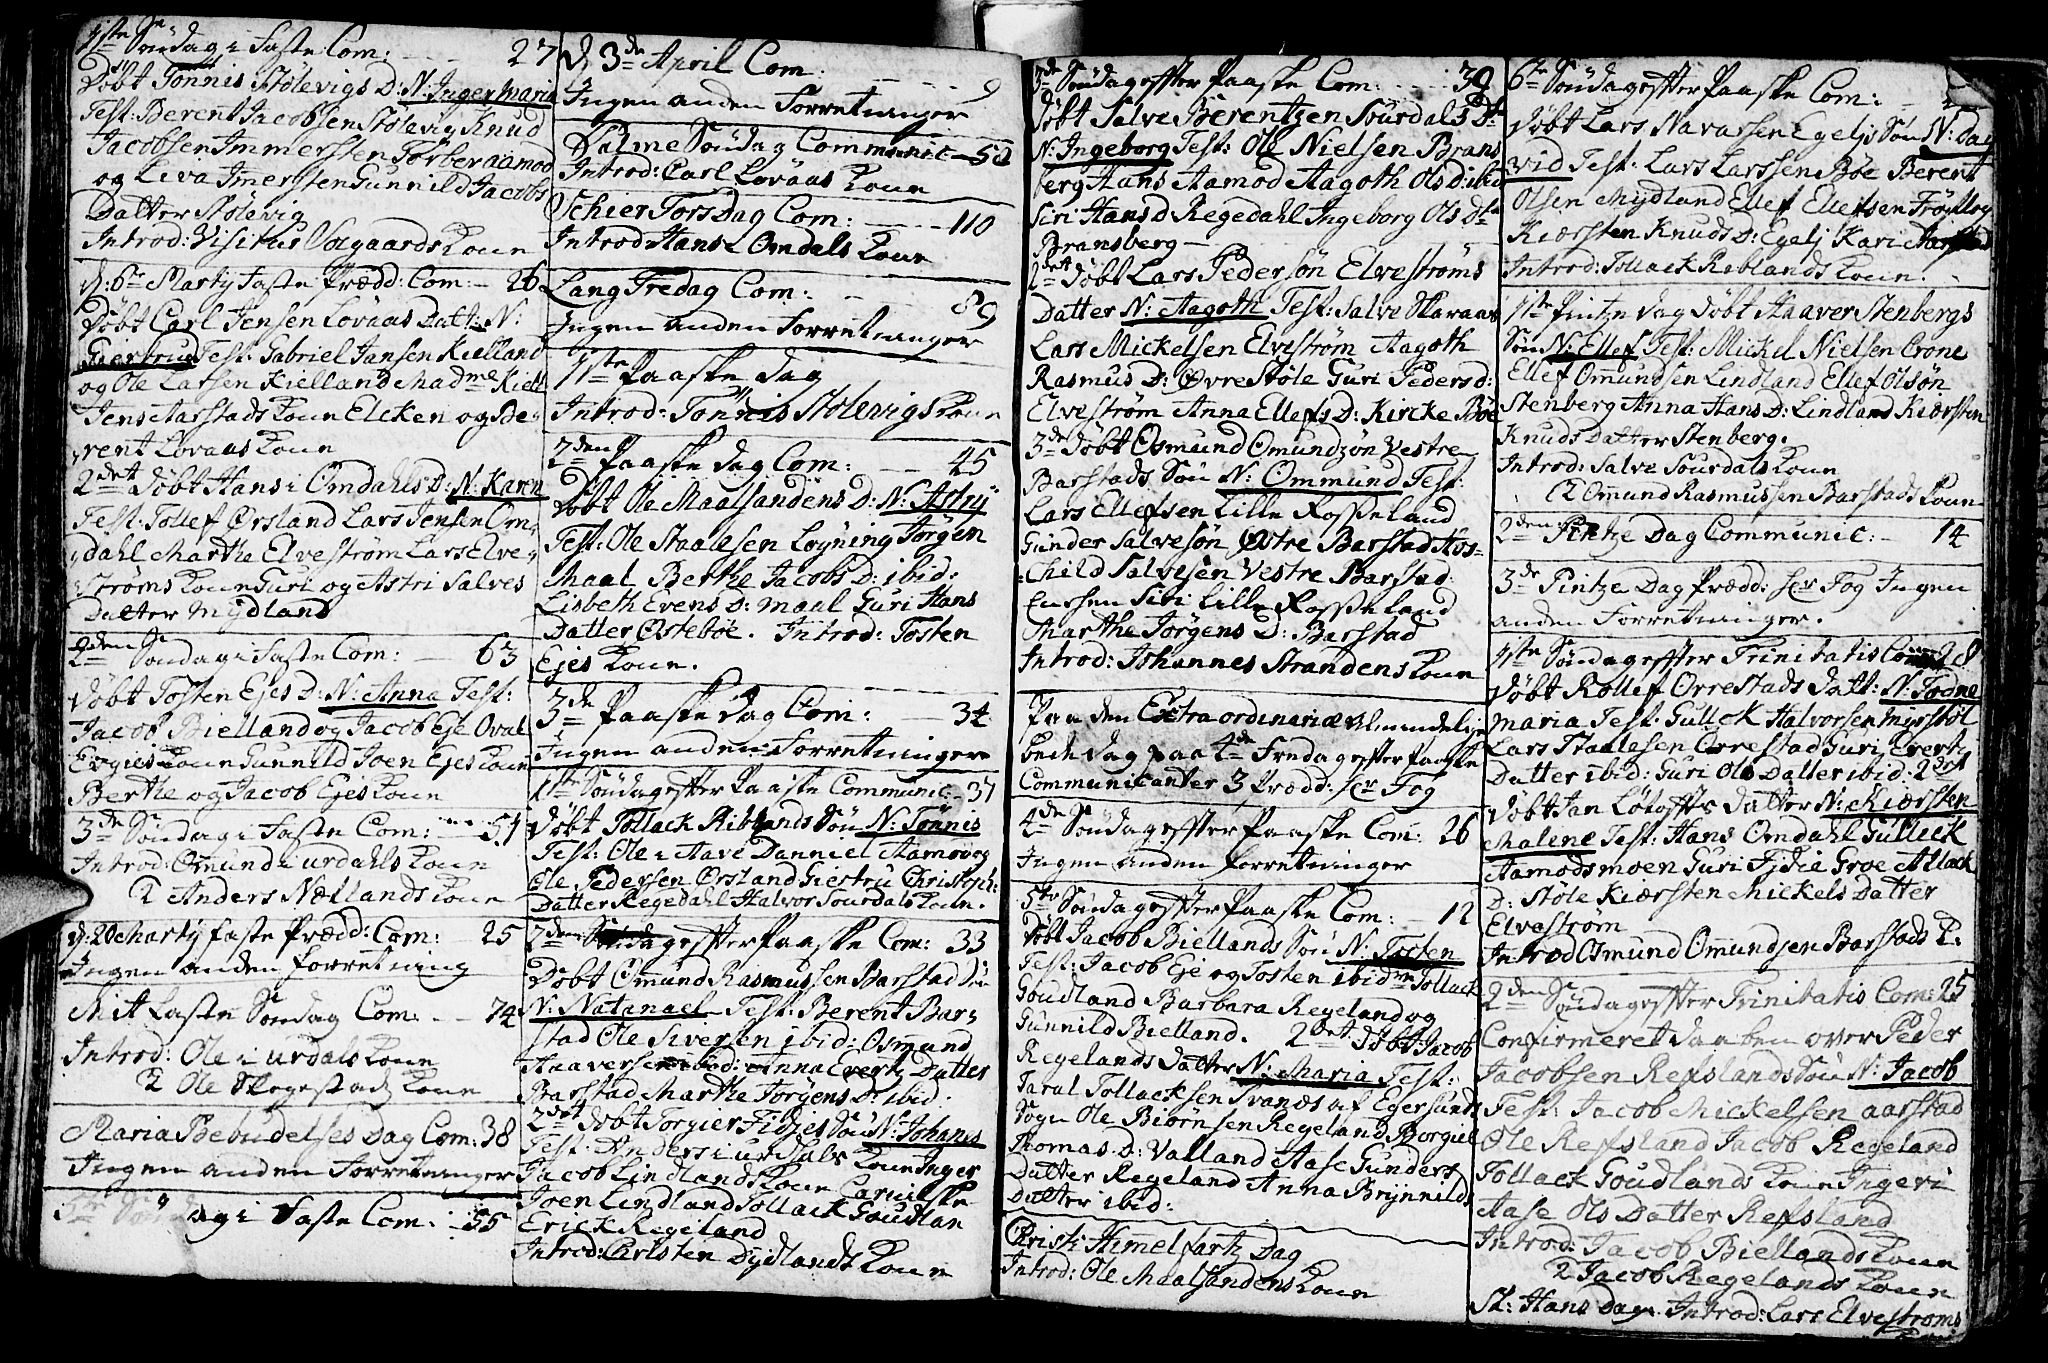 1ste Søndag i Faste Com: 27
Døbt Tönnis Stölevigs D: N: Inger Maria
Test: Berent Jacobsen Stölevig Knud
Jacobsen Immersten Torber Aamod
og Leva Immerssen Gunnild Jacobs
Datter Stölevig
Introd: Visitus Solgaards Kone
d: 6te Marty Faste Prædd: Com: 26
Døbt Carl Jensen Lovaas Datt: N:
Giertrud Test: Gabriel Jansen Kielland
og Ole Larsen Kielland Madme Kiell
Jens Aarstads Kone Elcken og Be-
rent Lovaas Kone
2det Døbt Hans i Omdahls D: N: Karen
Test: Tollef Ørsland Lars Jensen Om-
dahl Marthe Elvestrøm Lars Elve-
strøms Kone Guri og Astri Salves
Datter Mydland
2den Søndag i Faste Com: 63
Døbt Tosten Ejes D: N: Anna Test:
Jacob Bielland og Jacob Eje Oval
Evgies Kone Gunnild Joen Ejes Kone
Berthe og Jacob Ejes Kone
3de Søndag i Faste Com: 51
Introd: Omund i urdahls Kone
2 Anders Nællands Kone
d: 20 Marty faste Prædd: Com: 25
Ingen anden forretning
Mit Faste Søndag Com: 74
Introd: Ole i urdals Kone
2 Ole Skogestad Kone
Maria Bebudelses Dag Com: 38
Ingen anden Forretninger
5te Søndag i Faste Com: 55
d 3de April Com: 9
Ingen anden Forretninger
Palme Søndag Communic 52
Introd: Carl Lovaas Kone
Schier Torsdag Com: 110
Introd Hans i Omdals Kone
Lang Fredag Com: 89
Ingen anden Forretninger
1ste Paaske dag
Introd: Tönnis Stölevigs Kone
2den Paaske dag Com: 45
Døbt Ole Maalsandens D: N: Astrij
Test: Ole Staalesen Løyning Jørgen
Maal Berthe Jacobs D: ibid:
Lisbeth Evens D: Maal Guri Hans
Datter Østebøe. Introd: Tosten
Ejes Kone.
3de Paaske dag Com: 34
Ingen anden Forretninger
1ste Søndag effter Paaske Communic: 37
Døbt Tollack Riblands Søn N: Tönnis
Test: Ole i Aave Danniel Aamod og
Ole Pedersen Ørsland Giestru Christoph:
Datter Regedahl Halvor Sourdals Kone.
2den Søndag effter Paaske Com: 33
Døbt Omund Rasmussen Barstad Søn
N: Natanael Test: Berent Bar-
stad Ole Siversen ibid: Osmund
Haaversen ibid: Anna Evertz Datter
Barstad Marthe Jörgens D: ibid:
2det Døbt Torgier Fidjes Søn N: Johanes
Test: Anders i urdals Kone Inger
Jacob Lindlands Kone
Joen Lindland Tollack Goudlan
Erick Regeland
Introd: Carlsten Dydlands Kone
3de Søndag effter Paaske Com: 39
Døbt Salve Berentzen Sourdals Dt
N: Ingeborg Test: Ole Nielsen Brans
berg Hans Aamod Aagoth Ols D: ibid
Siri Hans D Regedahl Ingeborg Ols Dt
Bransberg
2det Døbt Lars Pedersøn Elvestrøms
Datter N: Aagoth Test: Salve Skaraas
Lars Mickelsen Elvestrøm Aagoth
Rasmus D: Øvre Støle Guri Peders d:
Elvestrøm Anna Ellefs D: Kircke Bøe
3de Døbt Osmund Omundzøn Vestre
Barstads Søn N: Ommund Test:
Lars Ellefsen Lille Rosseland
Gunder Salvesøn Østre Barstad As-
child Salvesen Vestre Barstad
Siri Lille Rosseland
Marthe Jørgens D: Barstad
Introd: Johannes Strandens Kone
Paa den Extra ordinariæ Almindelig
bede dag paa 4de Fredag effter Paaske
Communicanter 3 Prædd: Hr Fog
4de Søndag effter Paaske Com: 26
Ingen anden forretninger
5te Søndag effter Paaske Com: 12
Døbt Jacob Biellands Søn N: Tosten
Test: Jacob Eje og Tosten ibidm Tollack
Goudland Barbara Regeland og
Gunnild Bielland. 2det Døbt Jacob
Regelands Datter N: Maria Test:
Taral Tollacksen Svanæs af Egersunds
Sogn Ole Biørnsen Regeland Borgiel
Thomas D: Valland Aase Gunders
Datter Regeland Anna Brynnilds
Datter ibid:
Christi Himmelfartz Dag
Introd: Ole Maalsandens Kone
6te Søndag effter Paaske Com:
Døbt Lars Navassen Egelj Søn N: Da-
vid Test: Lars Larssen Bøe Berent
Olsen Mydland Ellef Ellefsen Frøytlog
Kiersten Knuds D: Egelj Kari
Introd: Tollack Riblands Kone.
1ste Pintze dag Døbt Haaver Stenbergs
Søn N: Ellef Test: Mickel Nielsen Crone
Ellef Omundsen Lindland Ellef Olsøn
Stenberg Anna Hans D: Lindland Kiersten
Knuds Datter Stenberg.
Introd: Salve Sourdals Kone
2 Omund Rasmussen Barstads Kone
2den Pintze Dag Communic: 14
3de Pintze Dag Prædd: Hr Fog Ingen
anden Forretninger.
1ste Søndag effter Trinitatis Com 28
Døbt Rollef Orrestads Datt: N: Todne
Maria Test: Gullck Halvorsen
Lars Staalesen Orrestad Guri Evertz
Datter ibid: Guri Ols Datter ibid: 2det
Døbt Jan Løtoffts Datter N: Kiersten
Malene Test: Hans Omdahl Gullick
Aamodsmoen Guri Fidie Groe Atlack
D: Støle Kiersten Mickels Datter
Elvestrøm
Introd Osmund Omundsen Barstads K:
2den Søndag effter Trinitatis Com: 25
Confirmeret Daaben over Peder
Jacobsen Refslands Søn N: Jacob
Test: Jacob Mickelsen Aarstad
Ole Refsland Jacob Regeland
Tollack Goudlands Kone Ingeri
Aase Ols Datter Refsland
Introd: Jacob Biellands Kone
2 Jacob Regelands Kone
St: Hans Dag Introd: Lars Elvestroms
Kone